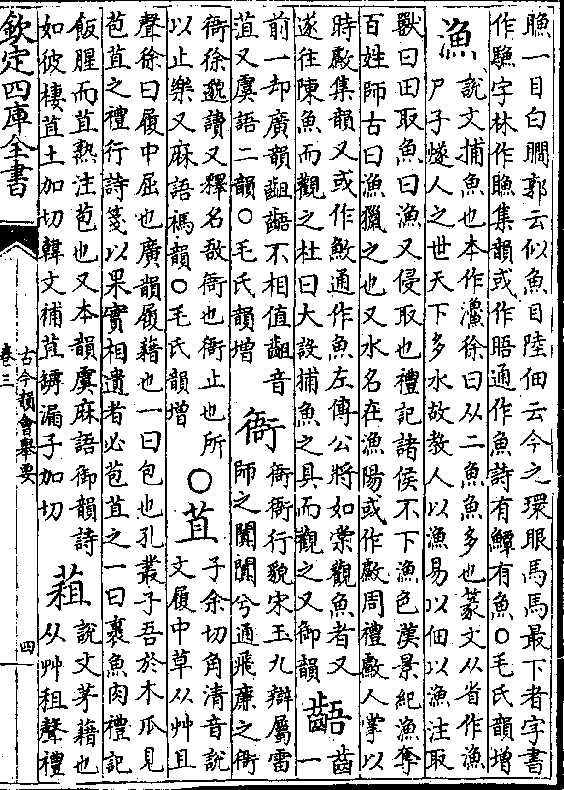 一目白瞯郭云似魚目陸佃云今之環眼馬馬最下者字書
作字林作集韻或作晤通作魚詩有驔有魚○毛氏韻增
漁
說文捕魚也本作𤅬徐曰从二魚魚多也篆文从省作漁
尸子燧人之世天下多水故教人以漁易以佃以漁注取
獸曰田取魚曰漁又侵取也禮記諸侯不下漁色漢景紀漁奪
百姓師古曰漁獵之也又水名在漁陽或作䱷周禮䱷人掌以
時䱷集韻又或作通作魚左傳公將如棠觀魚者又
遂往陳魚而觀之杜曰大設捕魚之具而觀之又御韻
齬
齒
一
前一却廣韻齟齬不相值齟音
苴又虞語二韻○毛氏韻增
衙
衙衙行貌宋玉九辯屬雷
師之闐闐兮通飛廉之衙
衙徐邈讀又釋名敔衙也衙止也所
以止樂又麻語禡韻○毛氏韻增
○苴
子余切角清音說
文履中草从艸且
聲徐曰履中屈也廣韻履藉也一曰包也孔叢子吾於木瓜見
苞苴之禮行詩箋以果實相遺者必苞苴之一曰裹魚肉禮記
飯腥而苴熟注苞也又本韻虞麻語御韻詩
如彼棲苴土加切韓文補苴罅漏子加切
蒩
說文茅藉也
从艸租聲禮
欽定四庫全書
古今韻會舉要
卷三
四